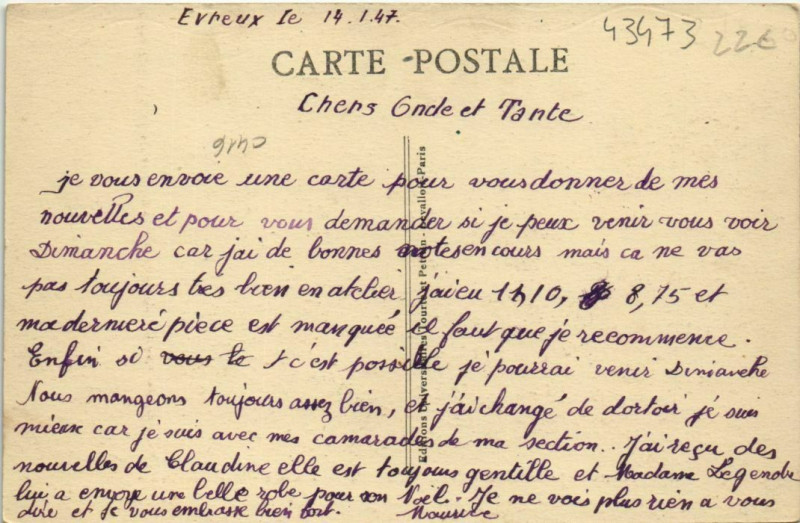 Evreux le 14.1.47.
43473 2260
CARTE POSTALE
Chers Oncle et Tante
je vous envoie une carte pour vous donner de mes
nouvelles et pour vous demander si je peux venir vous voir
Dimanche car j'ai de bonnes notes en cours mais ca ne vas
pas toujours tres bien en atelier j'ai eu 1h10, 8,75 et
ma derniere piece est manquée il faut que je recommence.
Enfin si vous le c'est possible je pourrai venir Dimanche
Nous mangeons toujours assez bien, et j'ai changé de dortoir je suis
mieux car je suis avec mes camarades de ma section.. J'ai reçu des
nouvelles de Claudine elle est toujours gentille et Madame Legendre
lui a envoye une belle robe pour son Noël. Je ne vois plus rien a vous
dire et je vous embrasse bien fort. Maurice
Editions Universitaires Tourlicot Petitjean Levallois-Paris